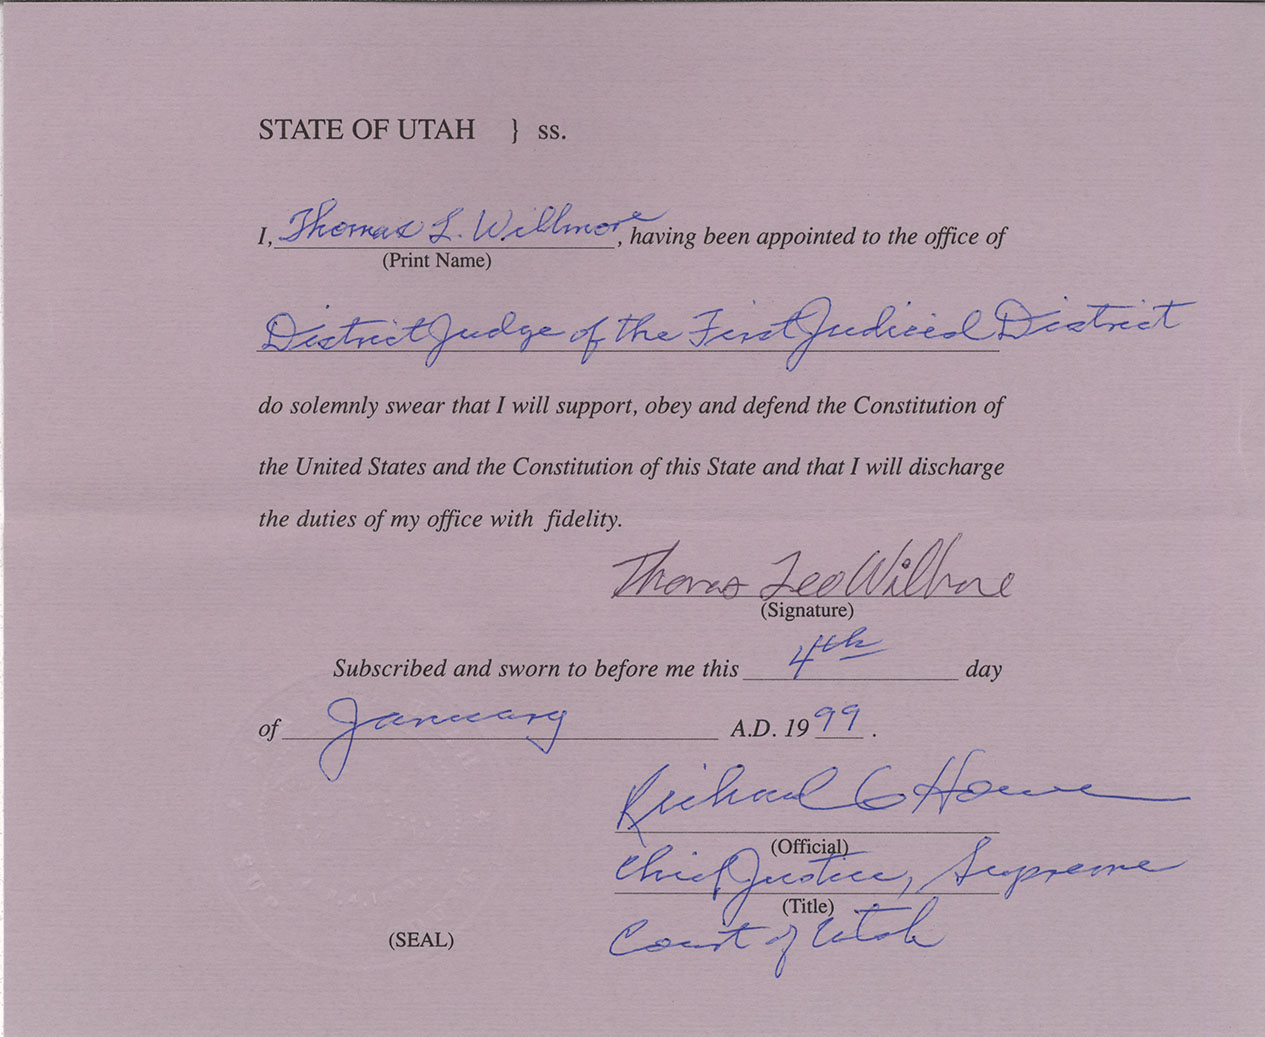 STATE OF UTAH } ss.
I, Thomas L. Willmore, having been appointed to the office of
(Print Name)
District Judge of the First Judicial District
do solemnly swear that I will support, obey and defend the Constitution of
the United States and the Constitution of this State and that I will discharge
the duties of my office with fidelity.
Thomas Leo Willmore
(Signature)
Subscribed and sworn to before me this 4th day
of January A.D. 1999.
Richard C Howe
(Official)
Chief Justice, Supreme
(Title)
Court of Utah
(SEAL)